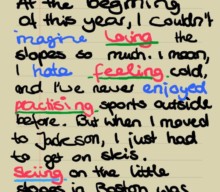 At the beginning
of this year, I couldn't
imagine loving the
slopes so much. I mean,
I hate feeling cold,
and I've never enjoyed
practising sports outside
before. But when I moved
to Jackson, I just had
to get on skis.
Skiing on the little
slopes in Boston was